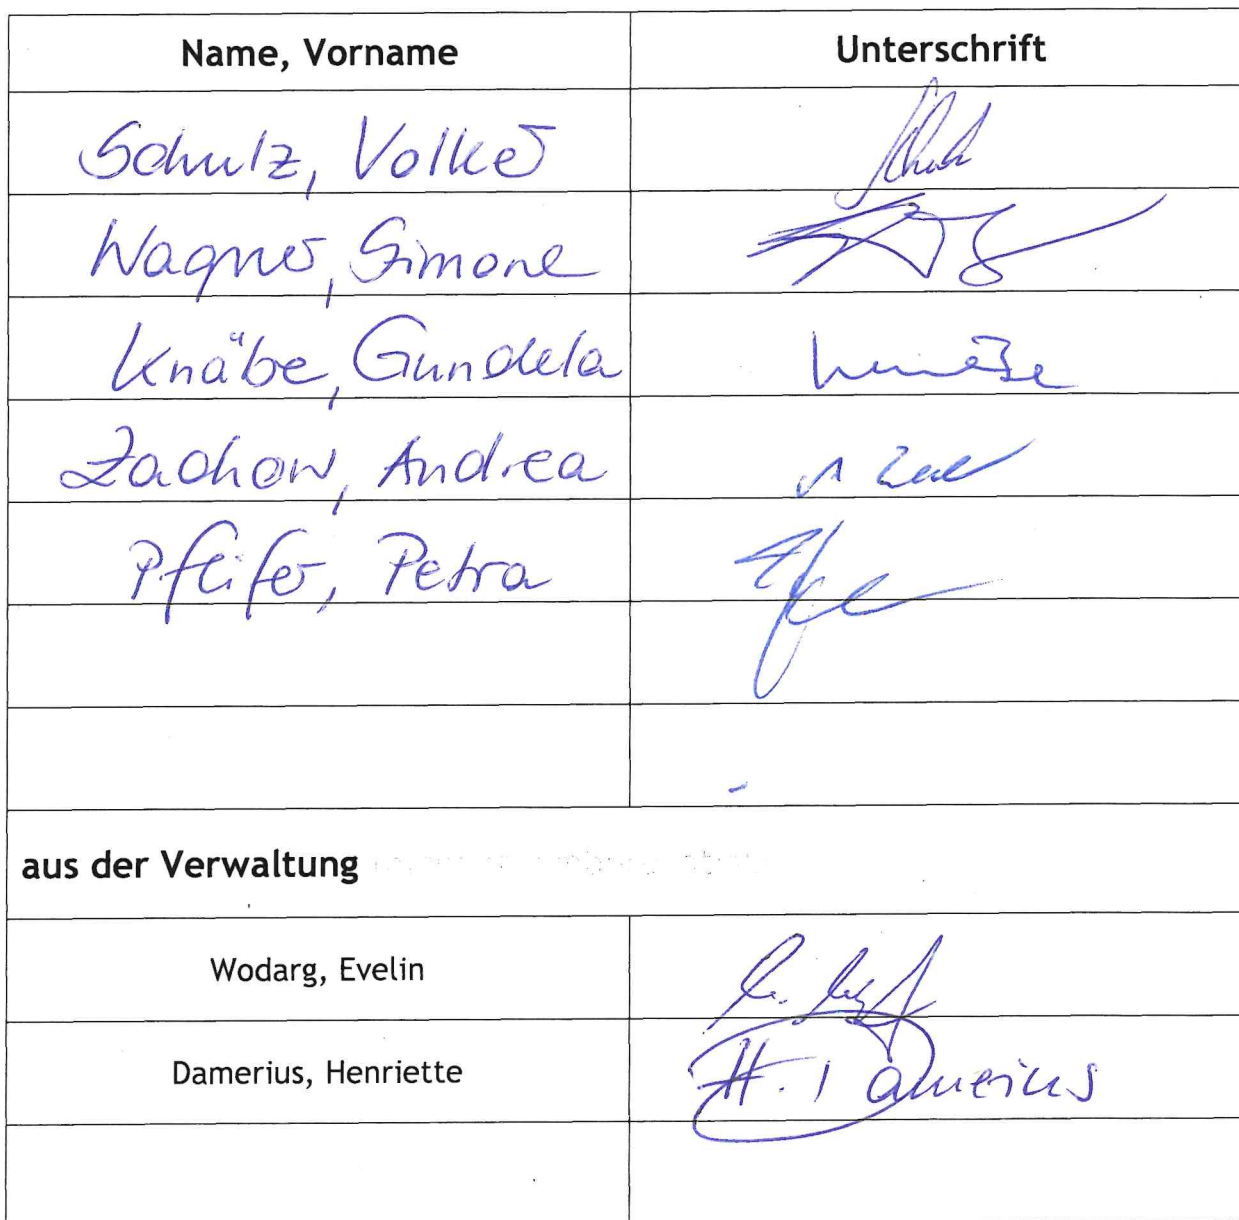 Name, Vorname Unterschrift
Schulz, Volker
Wagner, Simone
Knäbe, Gundela
Zachow, Andrea
Pfeifer, Petra
aus der Verwaltung
Wodarg, Evelin
Damerius, Henriette H. Damerius